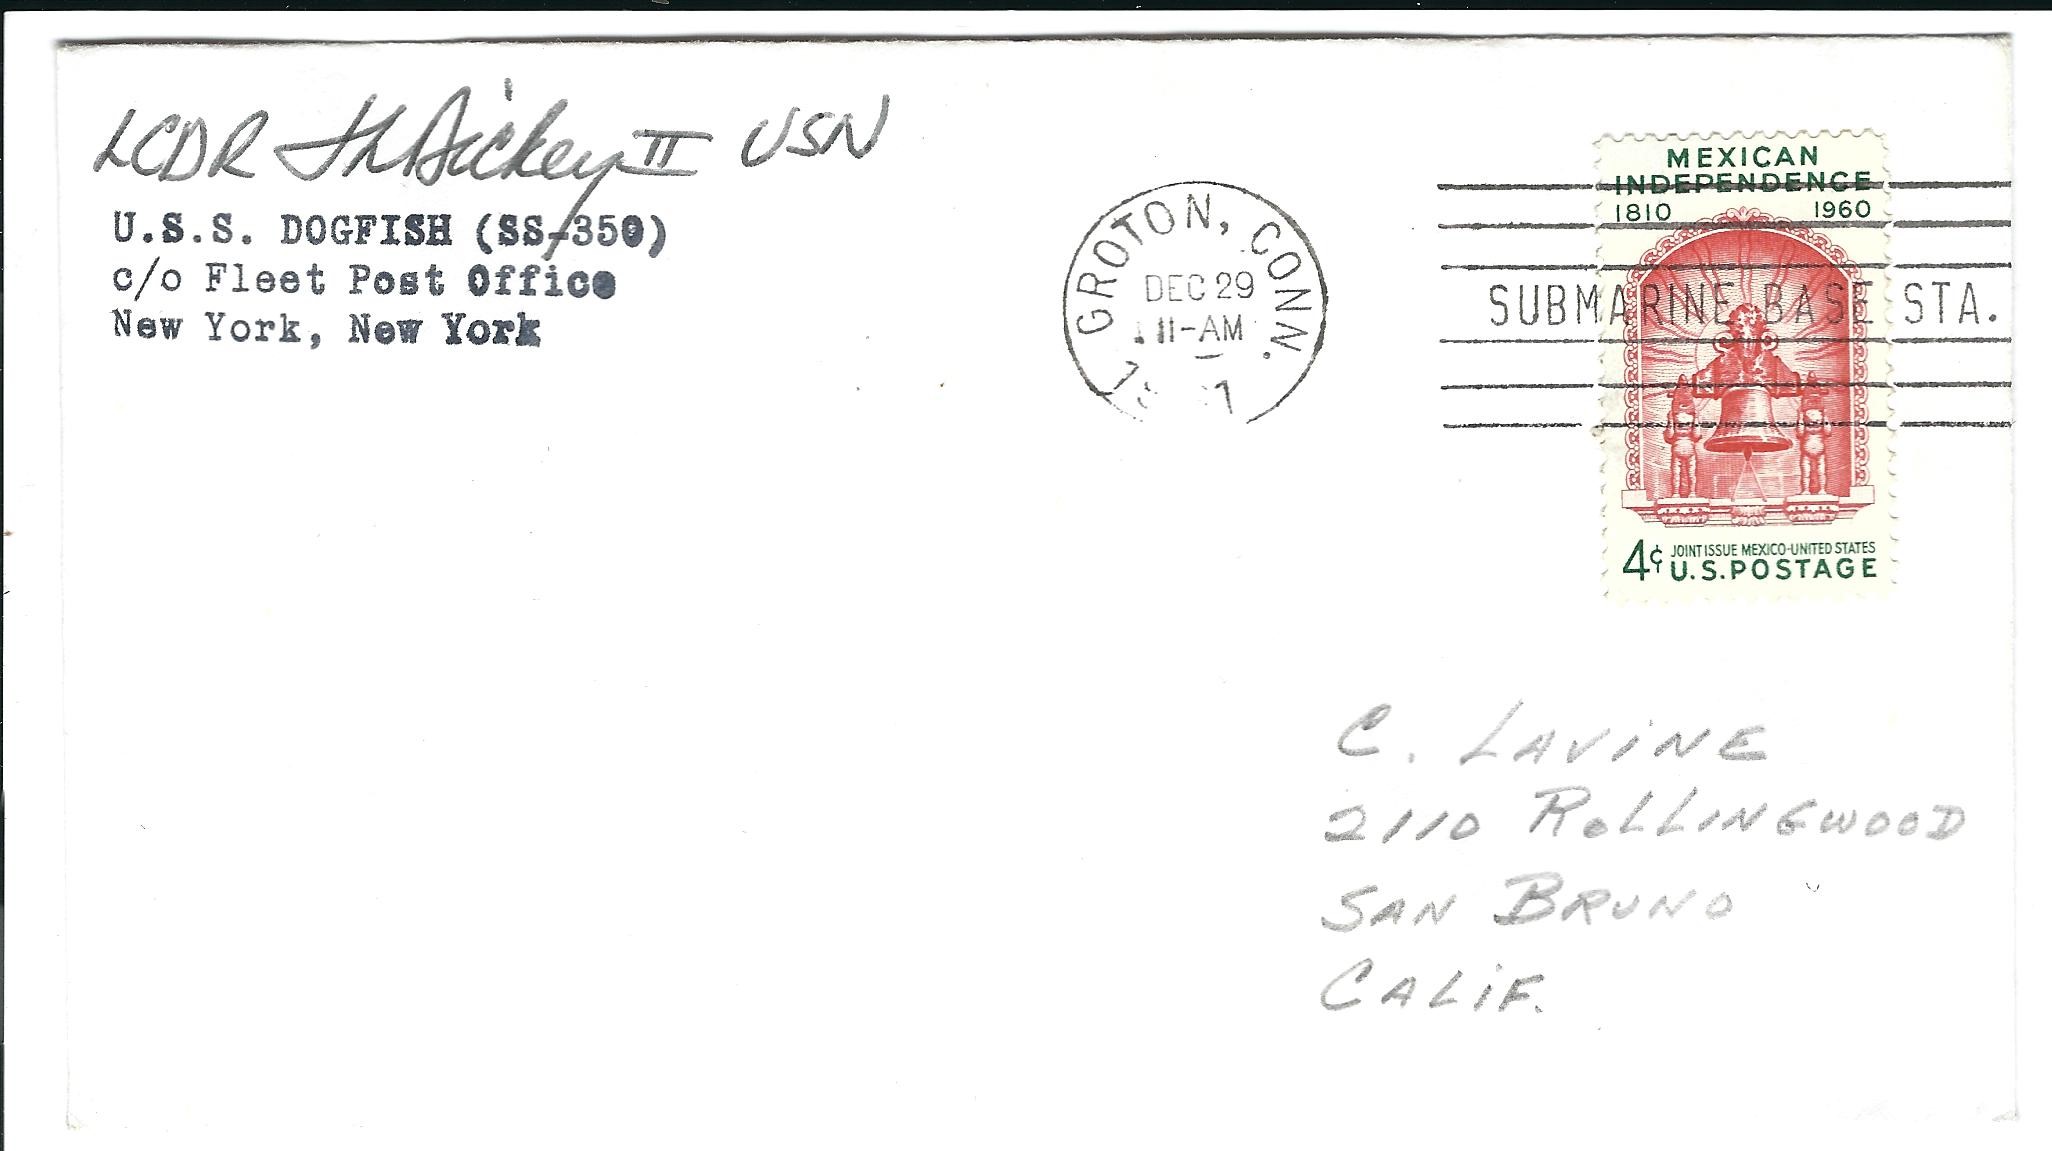 LCDR Dickey II USN
U.S.S. DOGFISH (SS-350)
c/o Fleet Post Office
New York, New York
GROTON, CONN.
DEC 29
11-AM
MEXICAN
INDEPENDENCE
1810 1960
SUBMARINE BASE STA.
4¢ JOINT ISSUE MEXICO-UNITED STATES
U.S. POSTAGE
C. LAVINE
2110 ROLLINGWOOD
SAN BRUNO
CALIF.